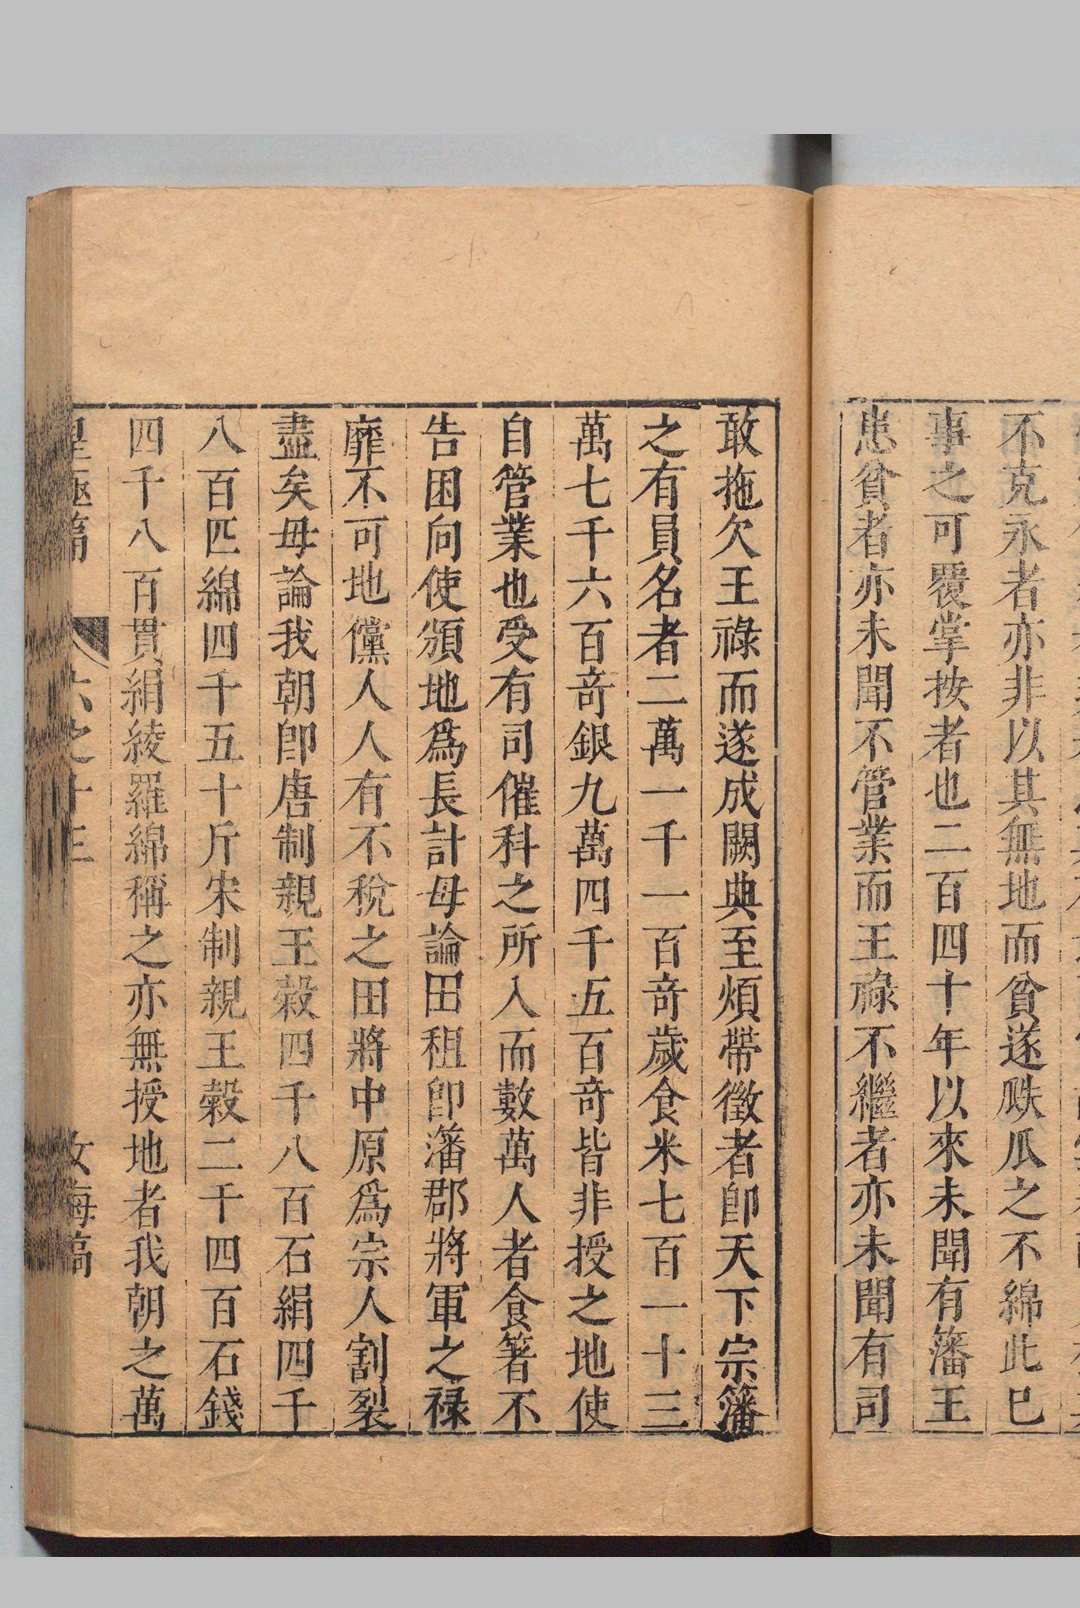 不克永者亦非以其無地而貧遂瓞瓜之不綿此已
事之可覆掌按者也二百四十年以來未聞有藩王
患貧者亦未聞不管業而王祿不繼者亦未聞有司
敢拖欠王祿而遂成闕典至煩帶徵者卽天下宗藩
之有員名者二萬一千一百竒歲食米七百一十三
萬七千六百竒銀九萬四千五百竒皆非授之地使
自管業也受有司催科之所入而數萬人者食箸不
告困向使頒地爲長計毋論田租卽藩郡將軍之祿
靡不可地儻人人有不稅之田將中原爲宗人割裂
盡矣毋論我朝卽唐制親王穀四千八百石絹四千
八百匹綿四千五十斤宋制親王穀二千四百石錢
四千八百貫絹綾羅綿稱之亦無授地者我朝之萬
六之十三